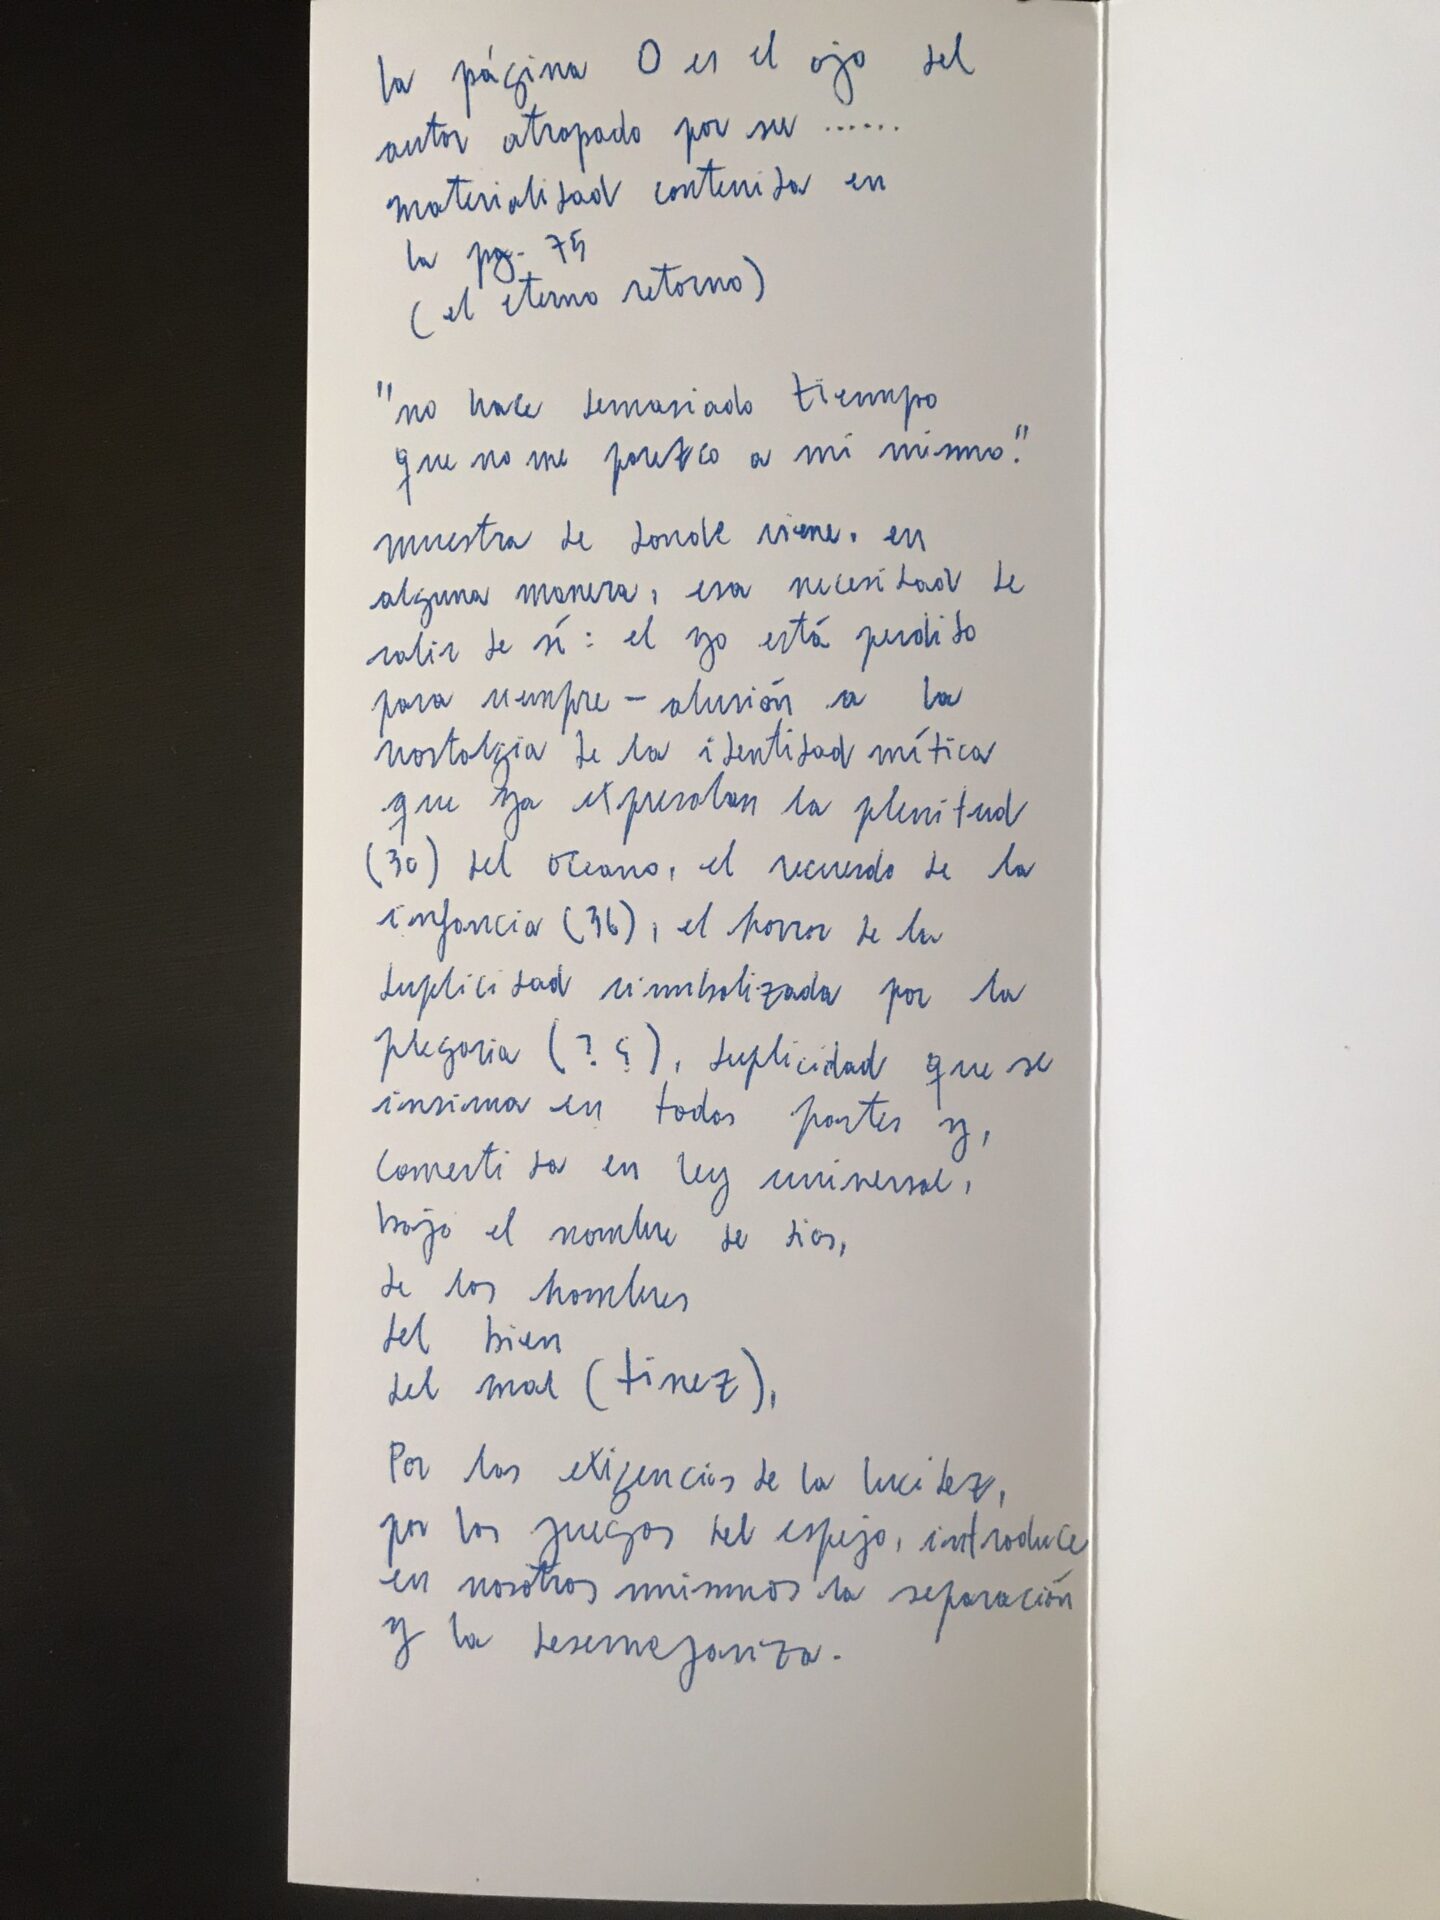 la página 0 es el ojo del
autor atrapado por su ......
materialidad contenida en
la pg. 75
(el eterno retorno)
"no hace demasiado tiempo
que no me parezco a mi mismo."
muestra de donde viene, en
alguna manera, esa necesidad de
salir de sí: el yo está perdido
para siempre - alusión a la
nostalgia de la identidad mítica
que ya expresaban la plenitud
(30) del oceano, el recuerdo de la
infancia (36), el horror de la
duplicidad simbolizada por la
plegaria (? ¿), duplicidad que se
insinua en todas partes y,
convertida en ley universal,
bajo el nombre de dios,
de los hombres
del bien
del mal (tinez),
Por las exigencias de la lucidez,
por los juegos del espejo, introduce
en nosotros mismos la separación
y la desemejanza.